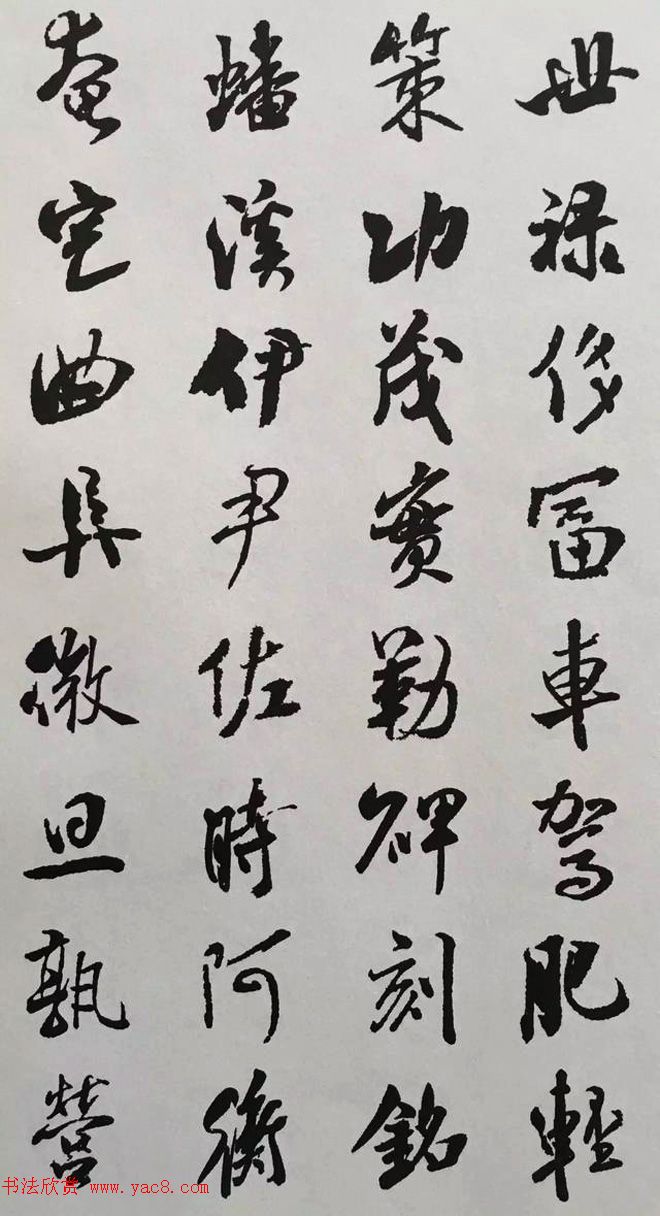 世禄侈冨車駕肥輕
策功茂實勒碑刻銘
蟠溪伊尹佐時阿衡
奄宅曲阜微旦孰營
书法欣赏 www.yac8.com